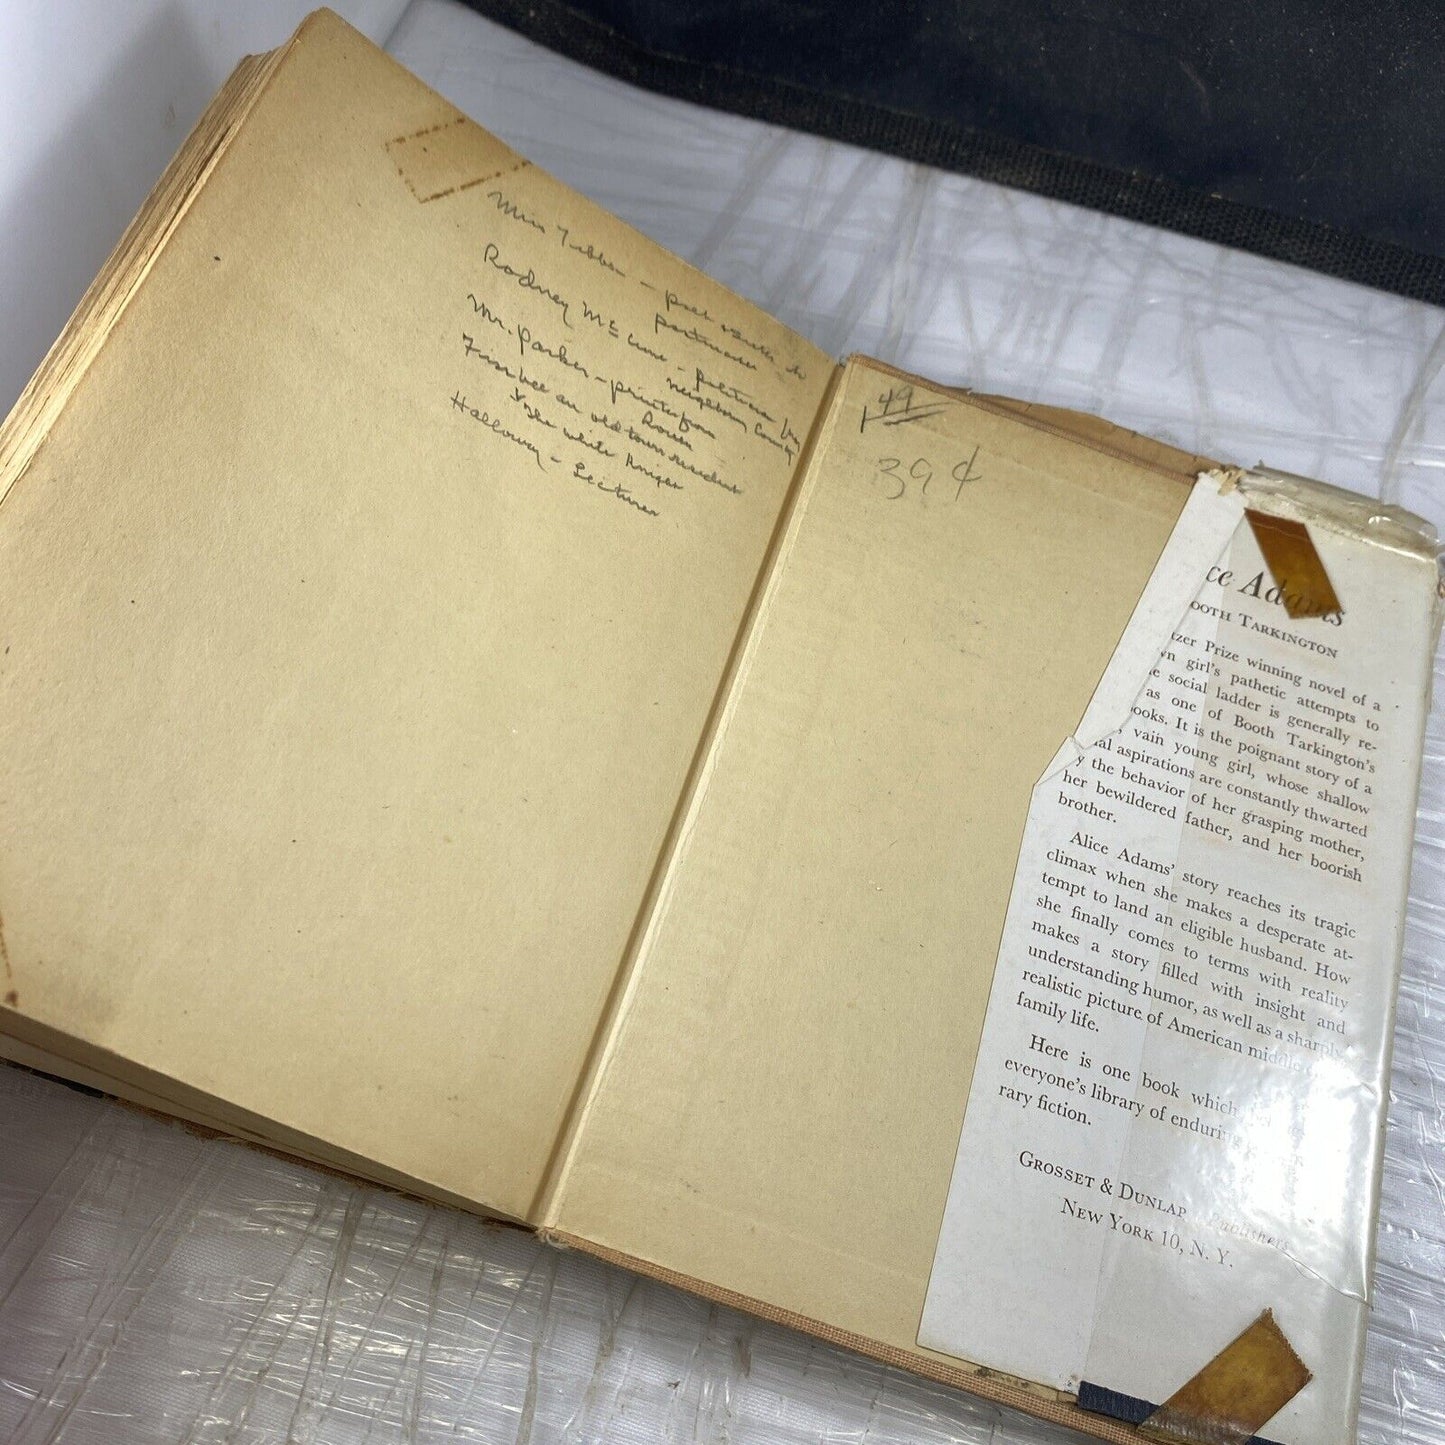 Miss Tibbs -
Rodney McCune - politician from
neighboring County
Mr. Parker - printer from
Fisbee an old town resident
+ the white
Halloway - Lectures
49
39 ¢
ce Adams
OOTH TARKINGTON
tzer Prize winning novel of a
wn girl's pathetic attempts to
e social ladder is generally re-
as one of Booth Tarkington's
ooks. It is the poignant story of a
, vain young girl, whose shallow
ial aspirations are constantly thwarted
y the behavior of her grasping mother,
her bewildered father, and her boorish
brother.
Alice Adams' story reaches its tragic
climax when she makes a desperate at-
tempt to land an eligible husband. How
she finally comes to terms with reality
makes a story filled with insight and
understanding humor, as well as a sharply
realistic picture of American middle
family life.
Here is one book which
everyone's library of enduring
rary fiction.
GROSSET & DUNLAP Publishers
NEW YORK 10, N. Y.